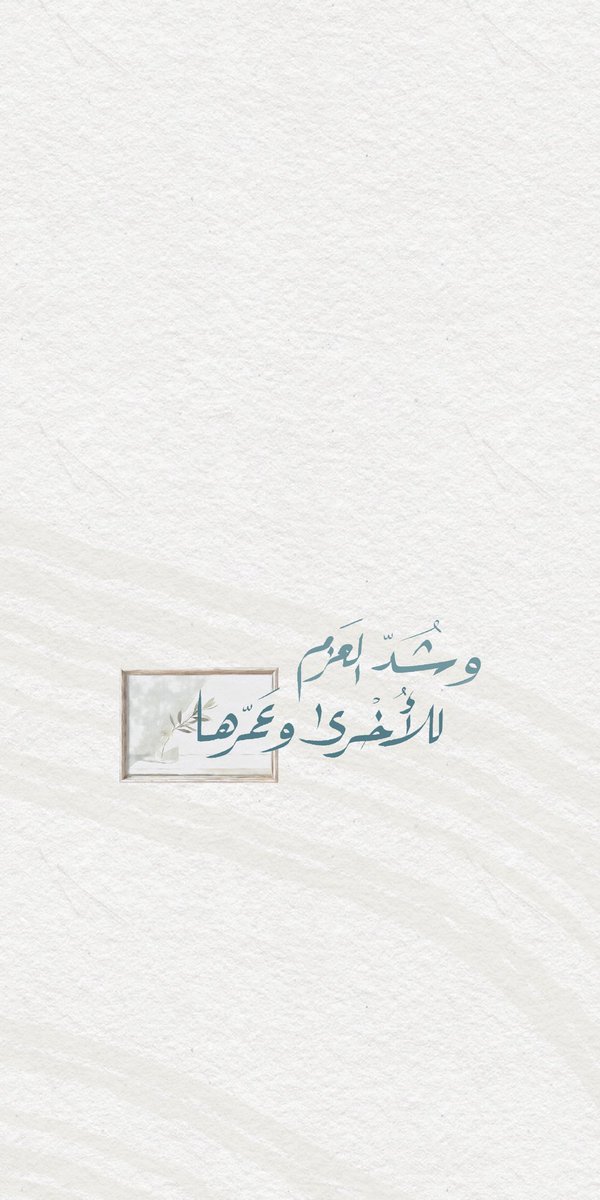 وشُدَّ العَزم
للأُخْرىٰ وعَمّرها